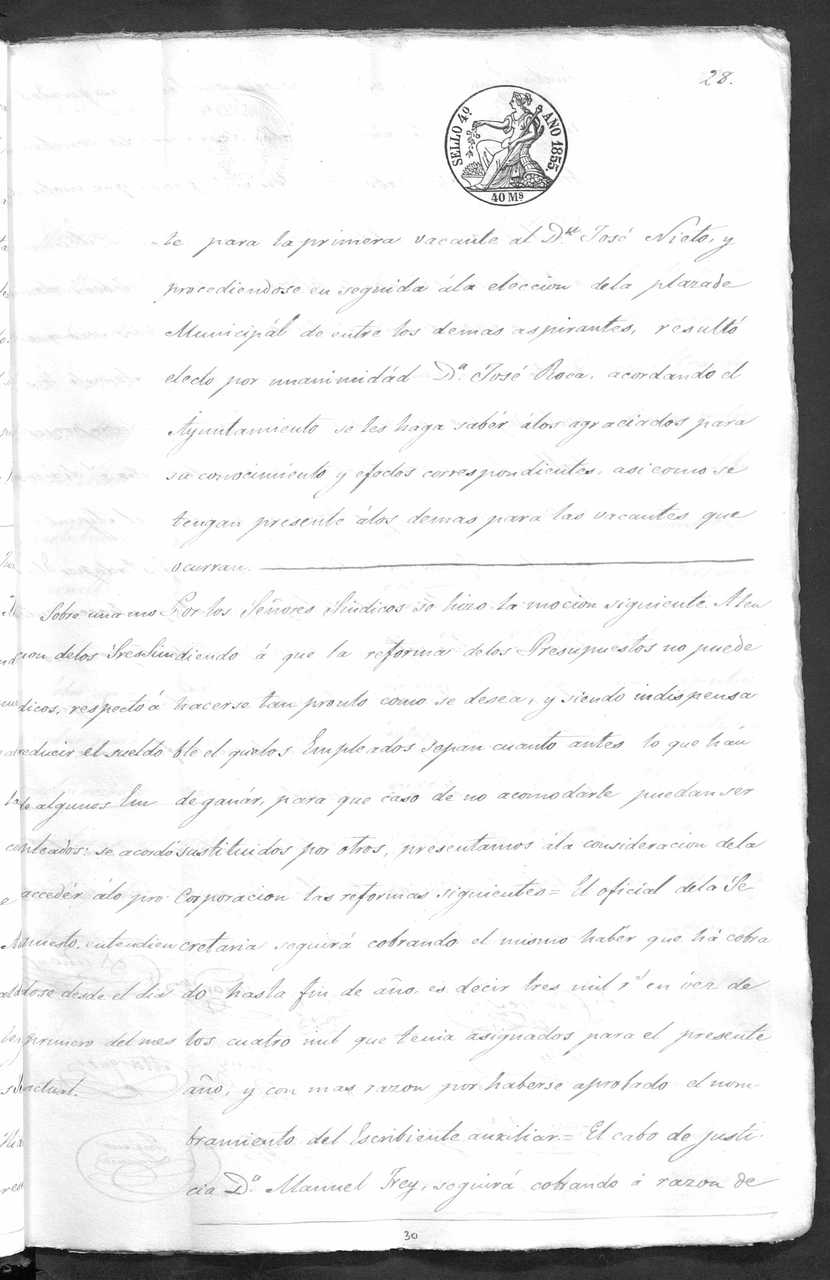 28.
SELLO 4º AÑO 1855.
40 Ms
te para la primera vacante al D.n José Nieto, y
procediendose en seguida ála eleccion dela plaza de
Municipál de entre los demas aspirantes, resultó
electo por unanimidád D.n José Roca, acordando el
Ayuntamiento se les haga sabér álos agraciados para
su conocimiento y efectos correspondientes, asi como se
tengan presente álos demas para las vacantes que
ocurran.
Sobre una mo
cion delos Sres Sin
dicos, respecto á
reducir el sueldo
de algunos Em
pleados: se acordó
accedér álo pro
puesto, entendien
dose desde el dia
primero del mes
actual.
Por los Señores Sindicos se hizo la mocion siguiente. Aten
diendo á que la reforma delos Presupuestos no puede
hacerse tan pronto como se desea, y siendo indispensa
ble el quelos Empleados sepan cuanto antes lo que hán
de ganár, para que caso de no acomodarle puedan sér
sustituidos por otros, presentamos ála consideracion dela
Corporacion las reformas siguientes = El oficial dela Se
cretaria seguirá cobrando el mismo haber que há cobra
do hasta fin de año, es decir tres mil r.s en véz de
los cuatro mil que tenia asignados para el presente
año, y con mas razon por haberse aprobado el nom-
bramiento del Escribiente auxiliar = El cabo de justi-
cia D.n Manuel Frey, seguirá cobrando á razon de
30